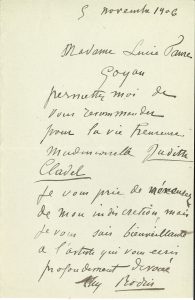 5 novembre 1906
Madame Lucie Faure
Goyau
permettez moi de
vous recommander
pour la vie heureuse
mademoiselle Judith
Cladel
je vous prie de m'excuser
de mon indiscretion mais
je vous sais bienveillante
a l'artiste qui vous ecris
profondement devoué
Aug Rodin